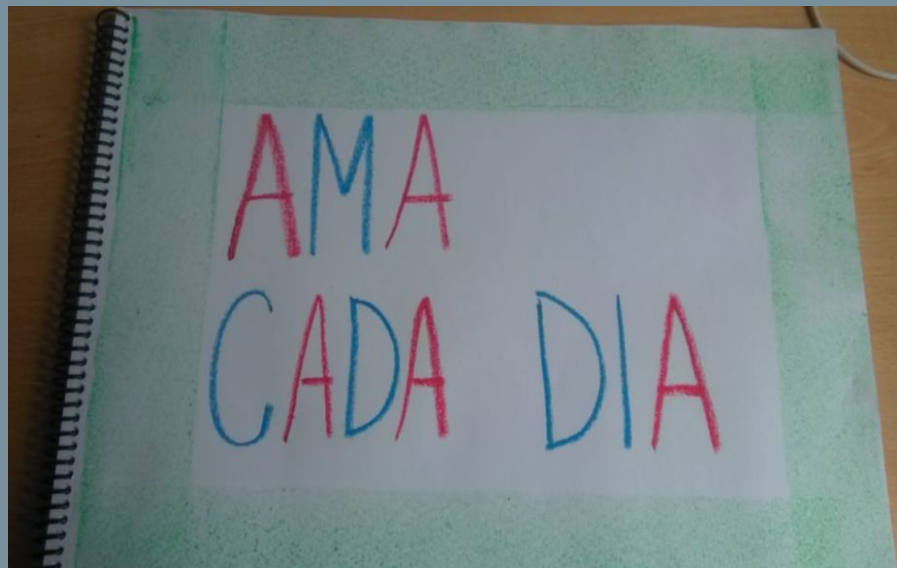 AMA
CADA DIA